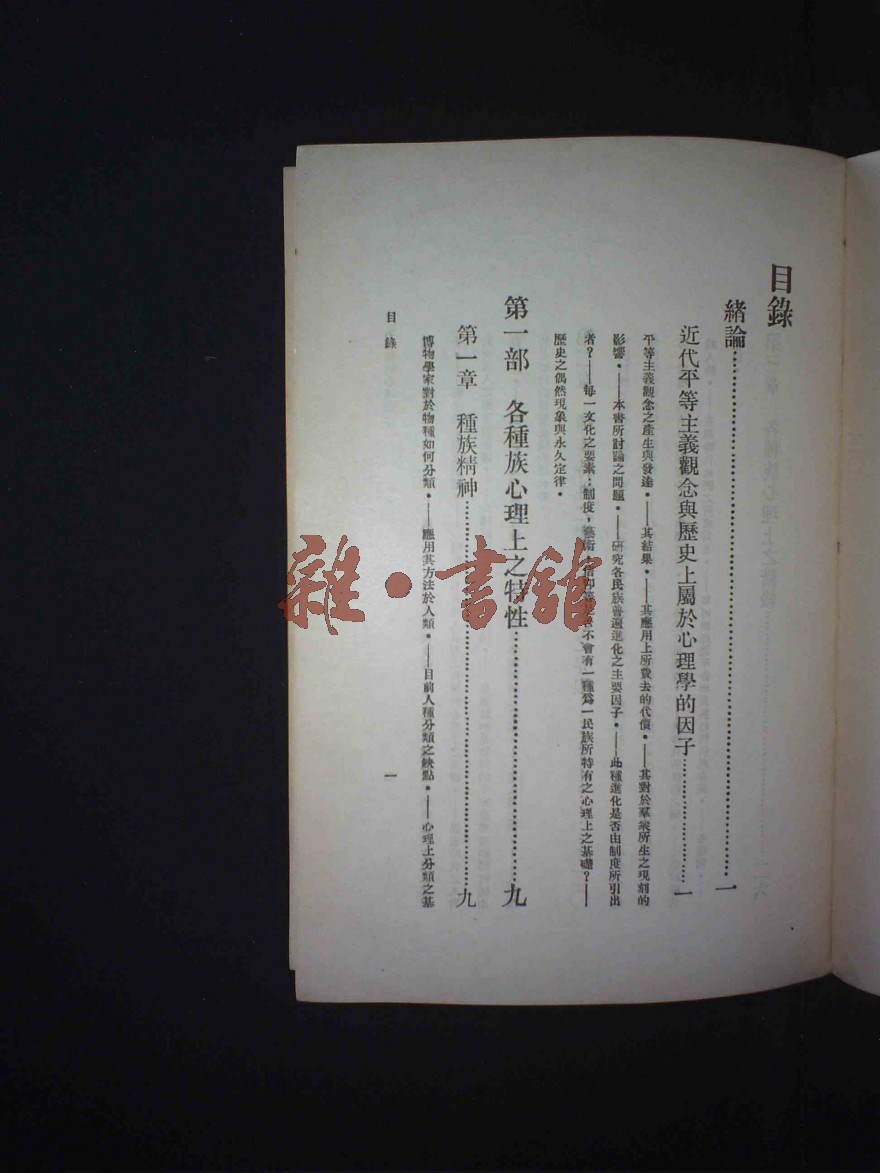 目錄
緒論……一
近代平等主義觀念與歷史上屬於心理學的因子……一
平等主義觀念之產生與發達。——其結果。——其應用上所費去的代價。——其對於羣衆所生之現刻的
影響。——本書所討論之問題。——研究各民族普遍進化之主要因子。——此種進化是否由制度所引出
者？——每一文化之要素：制度，藝術，信仰等是否不會有一種爲一民族所特有之心理上之基礎？——
歷史之偶然現象與永久定律。
第一部　各種族心理上之特性……九
第一章　種族精神……九
博物學家對於物種如何分類。——應用其方法於人類。——目前人種分類之缺點。——心理上分類之基
目錄
一
雜·書館